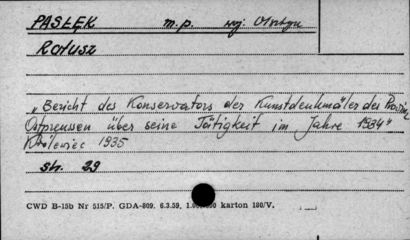 PASŁĘK m.p. woj. Olsztyn
Ratusz
„Bericht des Konservators der Kunstdenkmäler der Provinz
Ostpreussen über seine Tätigkeit im Jahre 1934"
Królewiec 1935
str. 29
CWD B-15b Nr 515/P. GDA-809. 6.3.59. karton 180/V.